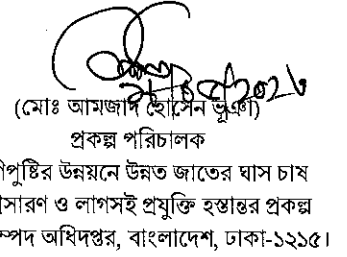 (মোঃ আমজাদ হোসেন ভূঞা)
প্রকল্প পরিচালক
পুষ্টির উন্নয়নে উন্নত জাতের ঘাস চাষ
সারণ ও লাগসই প্রযুক্তি হস্তান্তর প্রকল্প
ম্পদ অধিদপ্তর, বাংলাদেশ, ঢাকা-১২১৫।